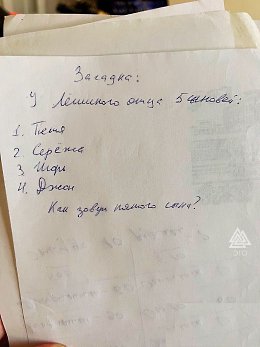 Загадка:
У Лёшиного отца 5 сыновей:
1. Петя
2. Серёжа
3. Игорь
4. Джон
Как зовут пятого сына?